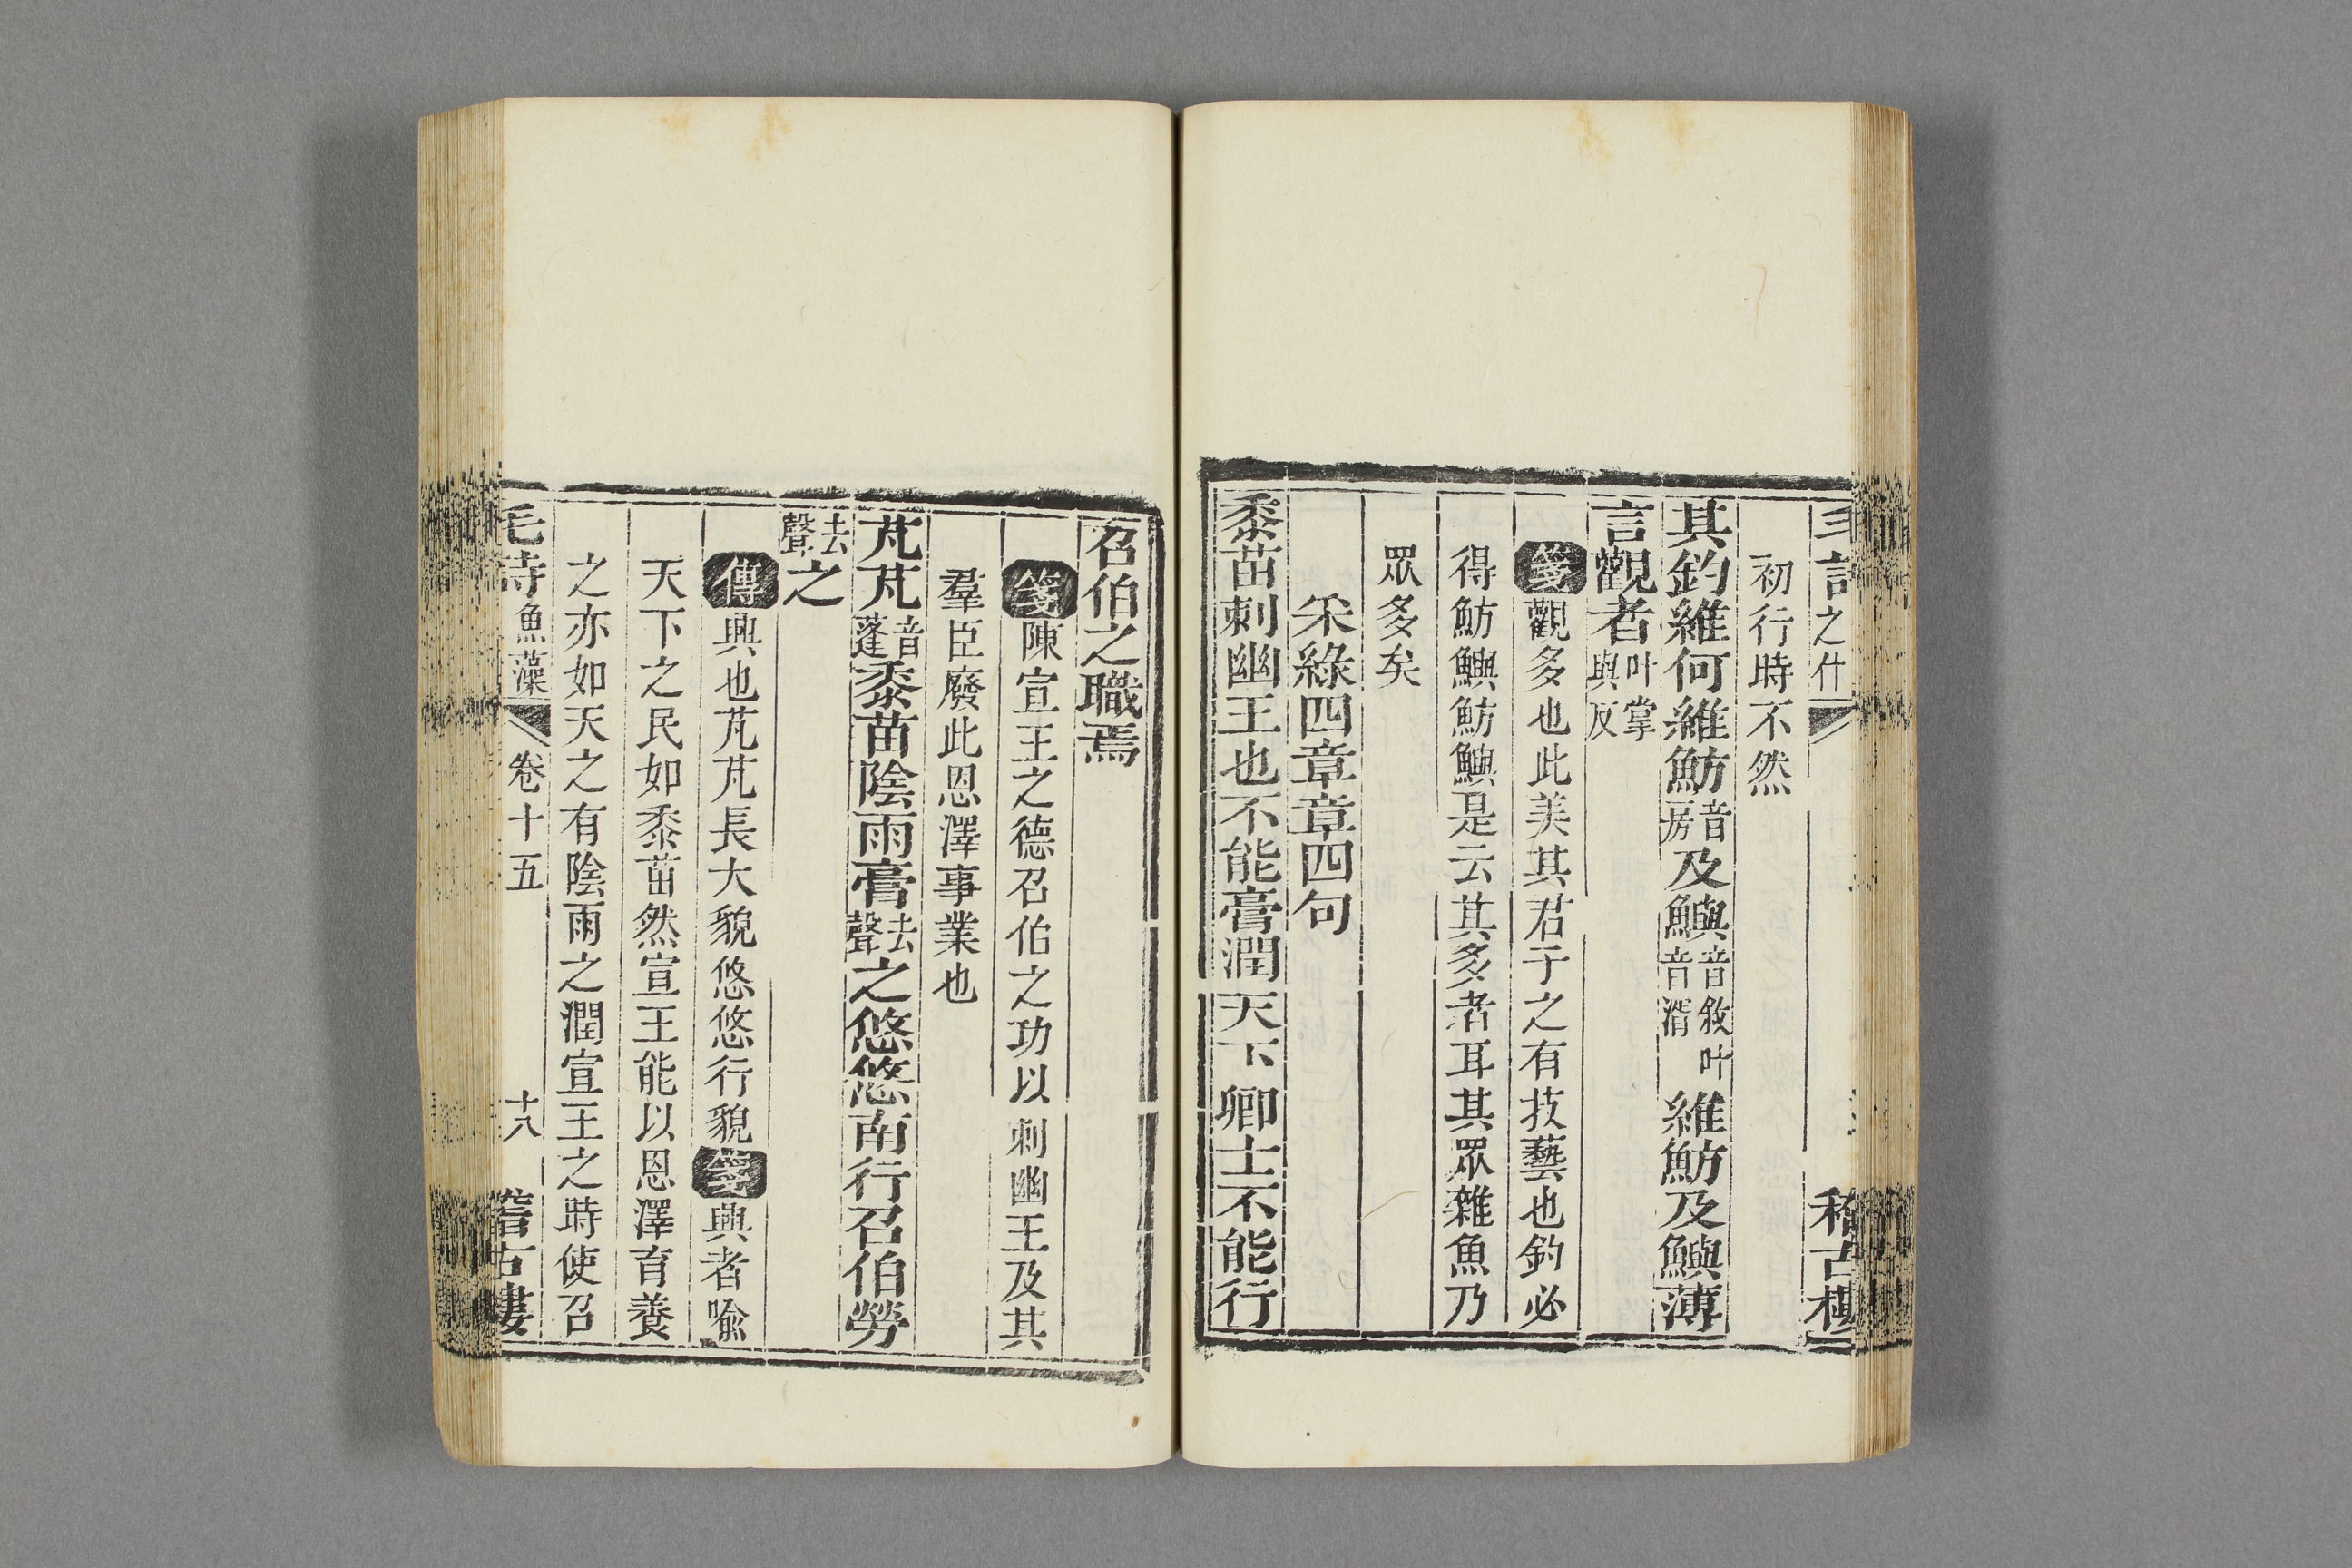 之什
稽古樓
初行時不然
其釣維何維魴音房及鱮音敘叶音湑維魴及鱮薄
言觀者叶掌與反
箋觀多也此美其君子之有技藝也釣必
得魴鱮魴鱮是云其多者耳其眾雜魚乃
眾多矣
采綠四章章四句
黍苗刺幽王也不能膏潤天下卿士不能行
召伯之職焉
箋陳宣王之德召伯之功以刺幽王及其
羣臣廢此恩澤事業也
芃芃音蓬黍苗陰雨膏去聲之悠悠南行召伯勞
去聲之
傳興也芃芃長大貌悠悠行貌箋興者喻
天下之民如黍苗然宣王能以恩澤育養
之亦如天之有陰雨之潤宣王之時使召
毛詩魚藻 卷十五 十八 稽古樓